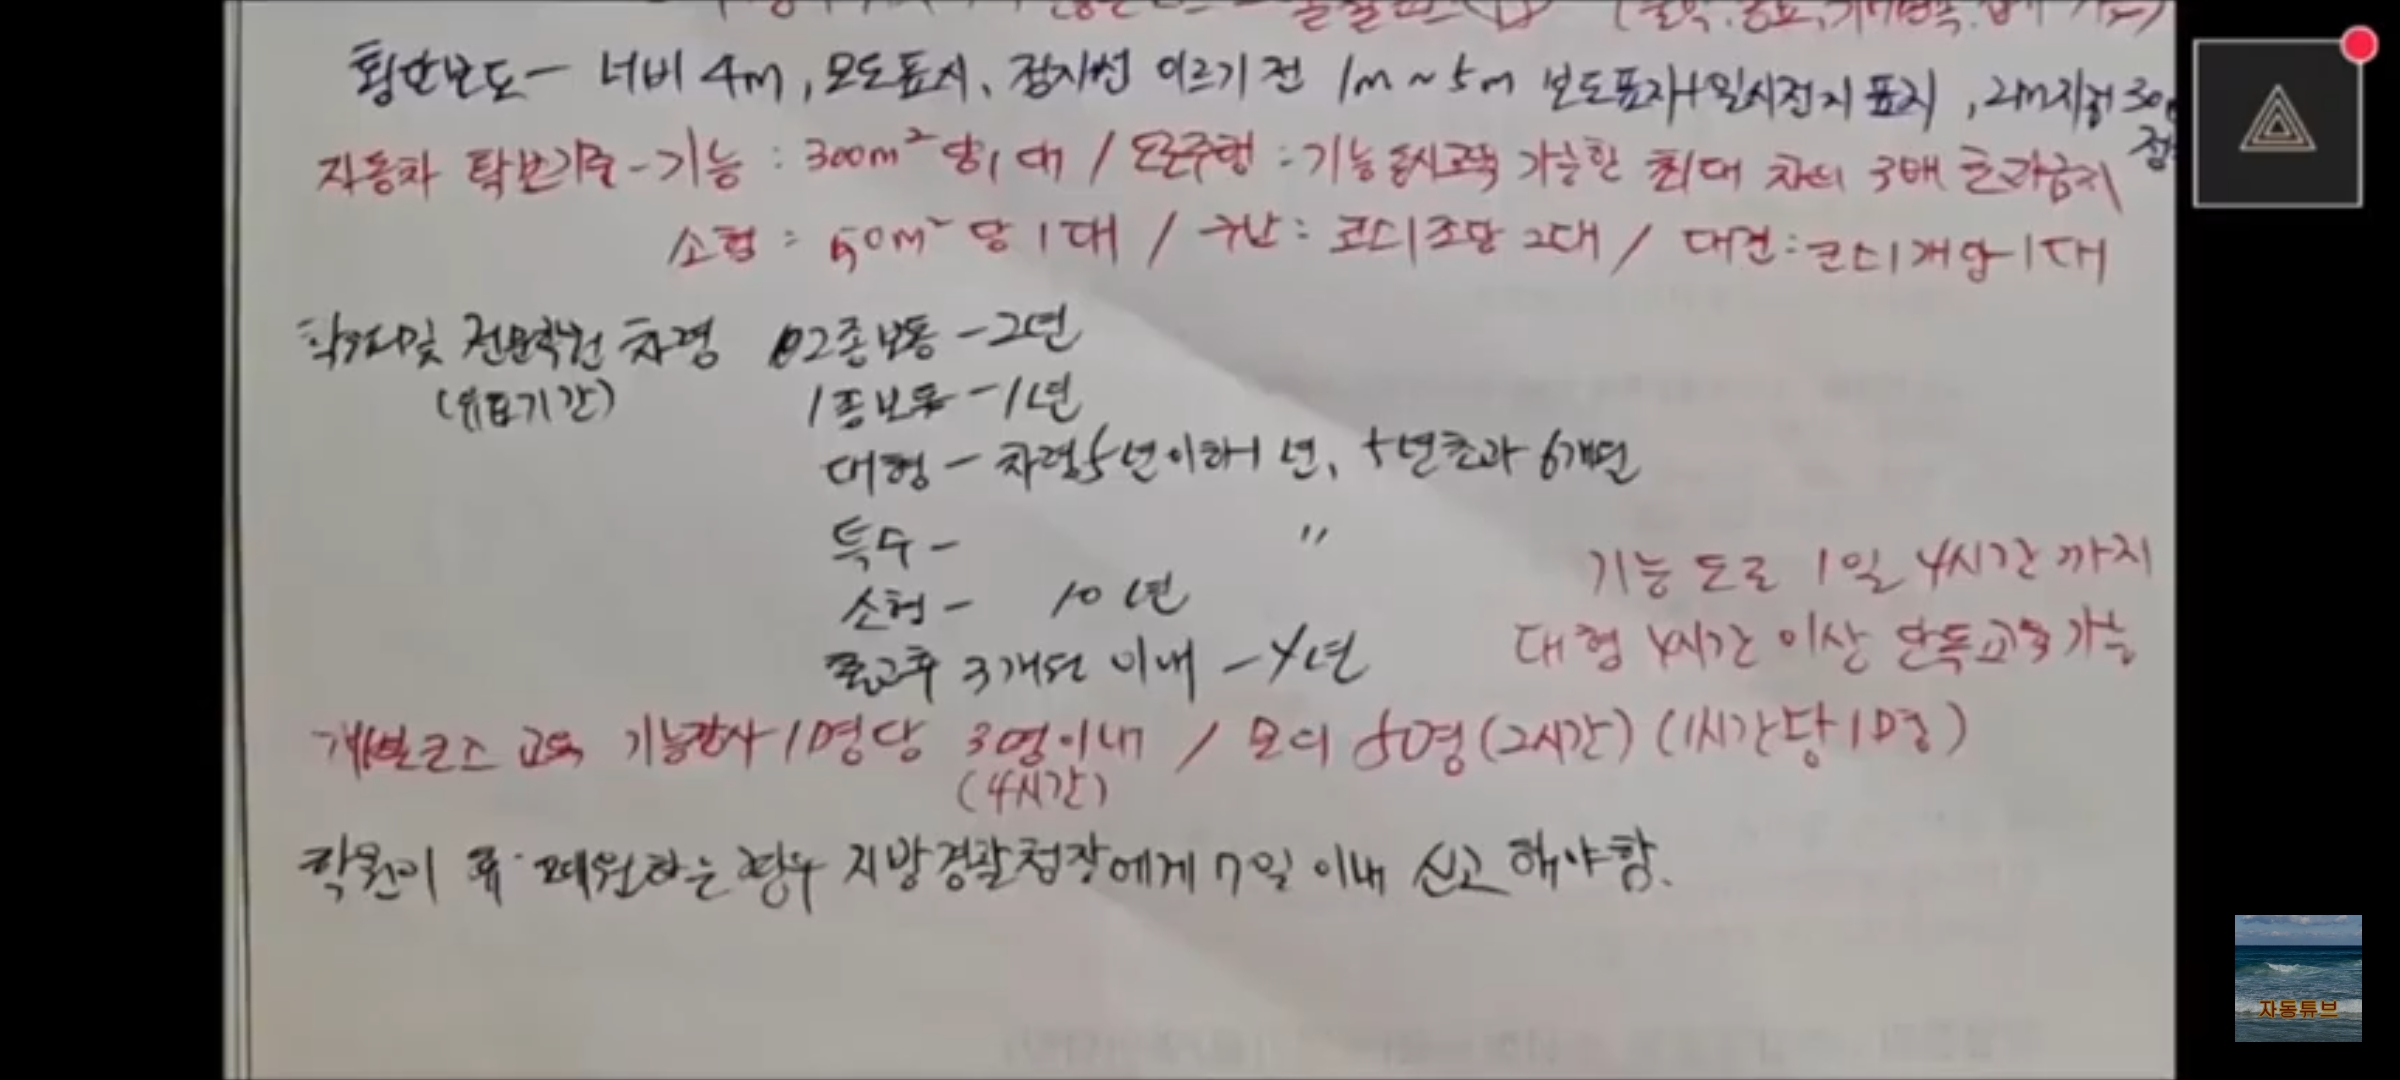 횡단보도 - 너비 4m, 모도표시, 정지선 이르기 전 1m ~ 5m 보도표지+일시정지 표지, 2m지점 30
자동차 확보기준 - 기능 : 300m² 당 1대 / 도로주행 : 기능 동시교육 가능한 최대 차의 3배 초과금지
소형 : 50m² 당 1대 / 구난 : 코스 1조당 2대 / 대견 : 코스 1개당 1대
학원 및 전문학원 차령 2종보통 - 2년
(유효기간) 1종보통 - 1년
대형 - 차령 5년이하 1년, 5년초과 6개월
특수 - "
소형 - 10년
기능 도로 1일 4시간 까지
출고후 3개월 이내 - 4년
대형 4시간 이상 단독교육 가능
개별코스 교육 기능강사 1명당 3명이내 / 모의 50명 (2시간) (1시간당 10명)
(4시간)
학원이 휴·폐원하는 경우 지방경찰청장에게 7일 이내 신고 해야함.
자동튜브